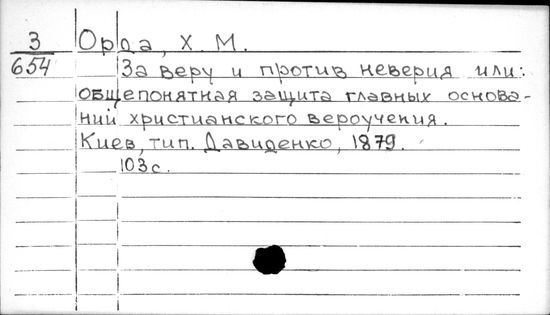 3 Орда, Х. М.
654 За веру и против неверия или:
общепонятная защита главных основа-
ний христианского вероучения.
Киев, тип. Давиденко, 1879.
103с.